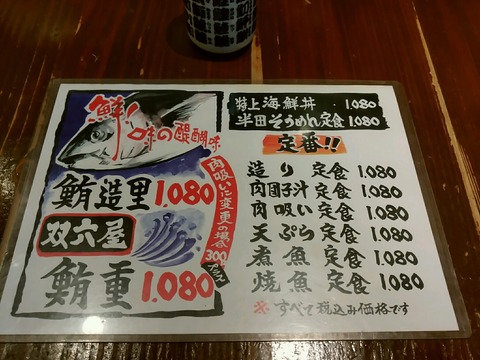 鮮!
味の醍醐味
鮪造里 1.080
肉吸いに変更の場合300円アップ
双六屋
鮪重 1.080
特上海鮮丼 1.080
半田そうめん定食 1.080
定番!!
造り定食 1.080
肉団子汁定食 1.080
肉吸い定食 1.080
天ぷら定食 1.080
煮魚定食 1.080
焼魚定食 1.080
※すべて税込み価格です